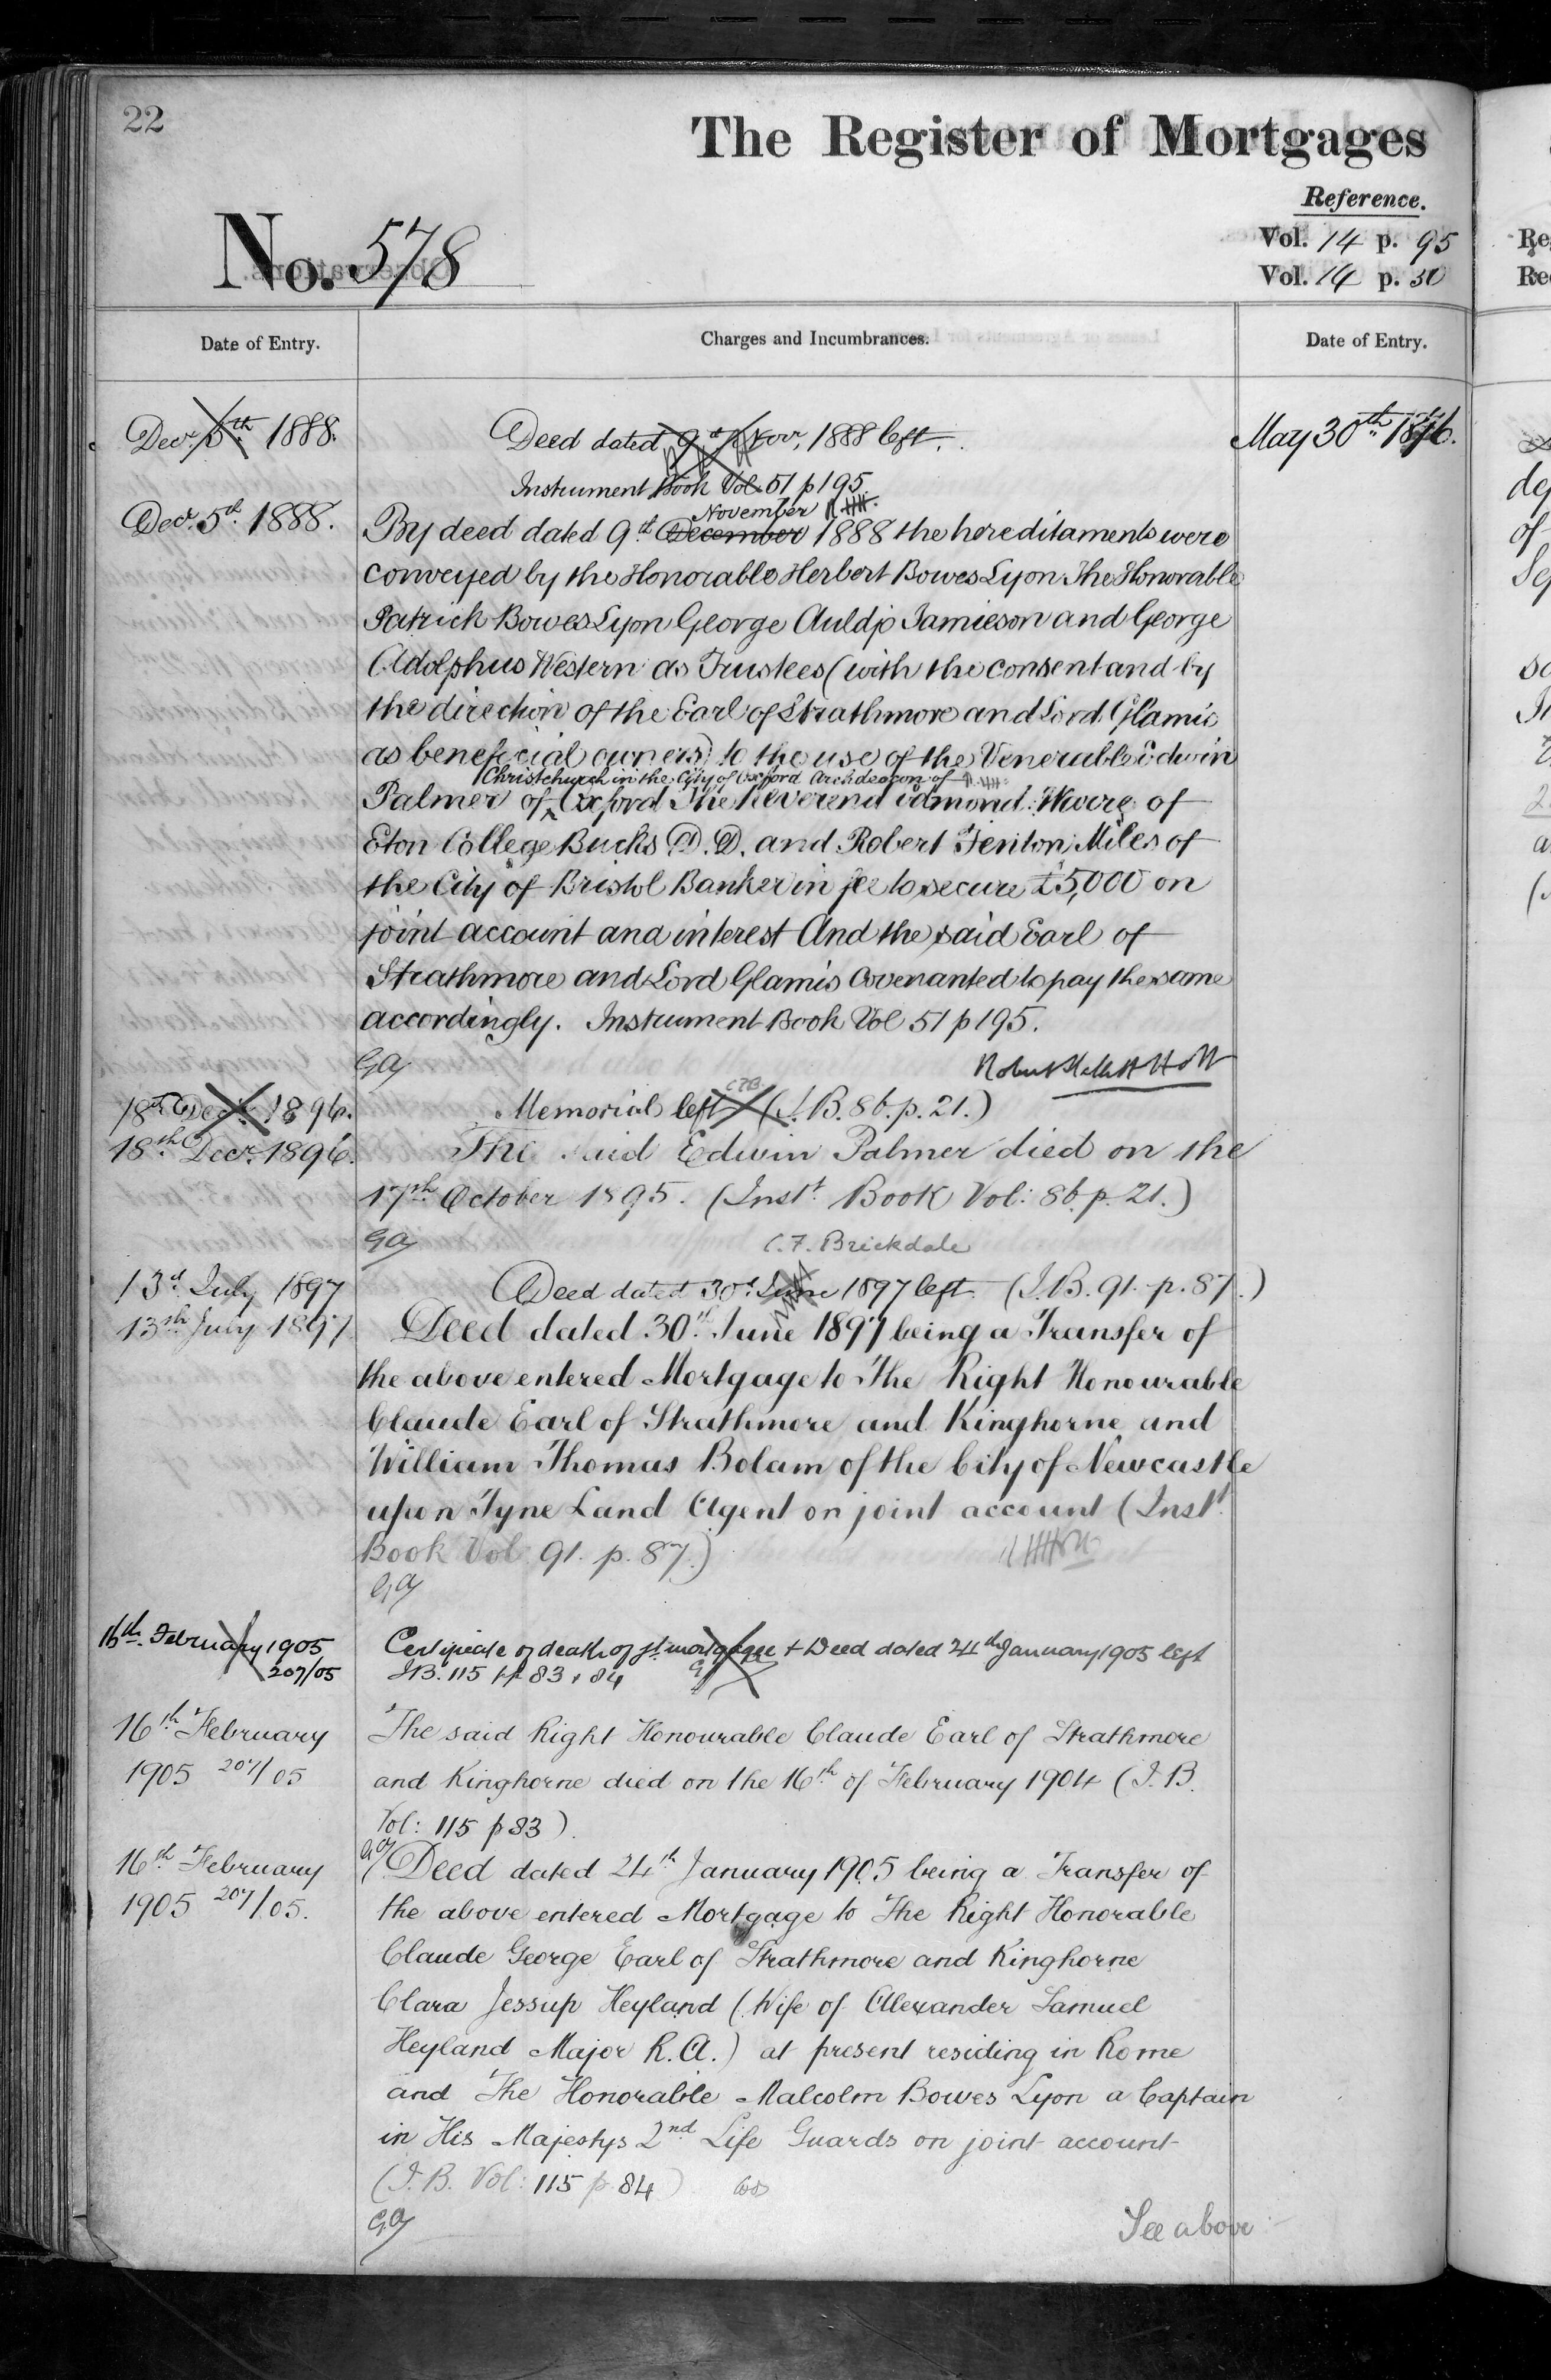 22
The Register of Mortgages
Reference.
No. 578
Vol. 14 p. 95
Vol. 14 p. 30
Date of Entry.
Charges and Incumbrances.
Date of Entry.
Decr. 5th 1888.
Deed dated 9th Novr. 1888 left.
May 30th 1876.
Instrument Book Vol 51 p 195
November
Decr. 5th 1888.
By deed dated 9th December 1888 the hereditaments were
conveyed by the Honorable Herbert Bowes Lyon The Honorable
Patrick Bowes Lyon George Auldjo Jamieson and George
Adolphus Western as Trustees (with the consent and by
the direction of the Earl of Strathmore and Lord Glamis
as beneficial owners) to the use of the Venerable Edwin
Christchurch in the City of Oxford Archdeacon of
Palmer of Oxford The Reverend Edmond Warre of
Eton College Bucks D.D. and Robert Fenton Miles of
the City of Bristol Banker in fee to secure £5,000 on
joint account and interest And the said Earl of
Strathmore and Lord Glamis Covenanted to pay the same
accordingly. Instrument Book Vol 51 p 195.
GA
Robert Hallett Holt
C.F.B.
18th Decr. 1896.
Memorial left (I.B. 86. p. 21.)
18th Decr. 1896.
The said Edwin Palmer died on the
17th October 1895. (Inst. Book Vol: 86. p. 21.)
GA
C. F. Brickdale
13d July 1897
Deed dated 30d June 1897 left (I.B. 91. p. 87.)
13th July 1897
Deed dated 30th June 1897 being a Transfer of
the above entered Mortgage to The Right Honourable
Claude Earl of Strathmore and Kinghorne and
William Thomas Bolam of the City of Newcastle
upon Tyne Land Agent on joint account (Inst
Book Vol 91. p. 87.)
GA
16th February 1905
207/05
Certificate of death of 1st mortgagee + Deed dated 24th January 1905 left
I.B. 115 pp 83 + 84
16th February
1905 207/05
The said Right Honourable Claude Earl of Strathmore
and Kinghorne died on the 16th of February 1904 (I.B.
Vol: 115 p 83).
GA
16th February
1905 207/05.
Deed dated 24th January 1905 being a Transfer of
the above entered Mortgage to The Right Honorable
Claude George Earl of Strathmore and Kinghorne
Clara Jessup Heyland (Wife of Alexander Samuel
Heyland Major R.A.) at present residing in Rome
and The Honorable Malcolm Bowes Lyon a Captain
in His Majestys 2nd Life Guards on joint account
(I.B. Vol: 115 p 84)
GA
See above